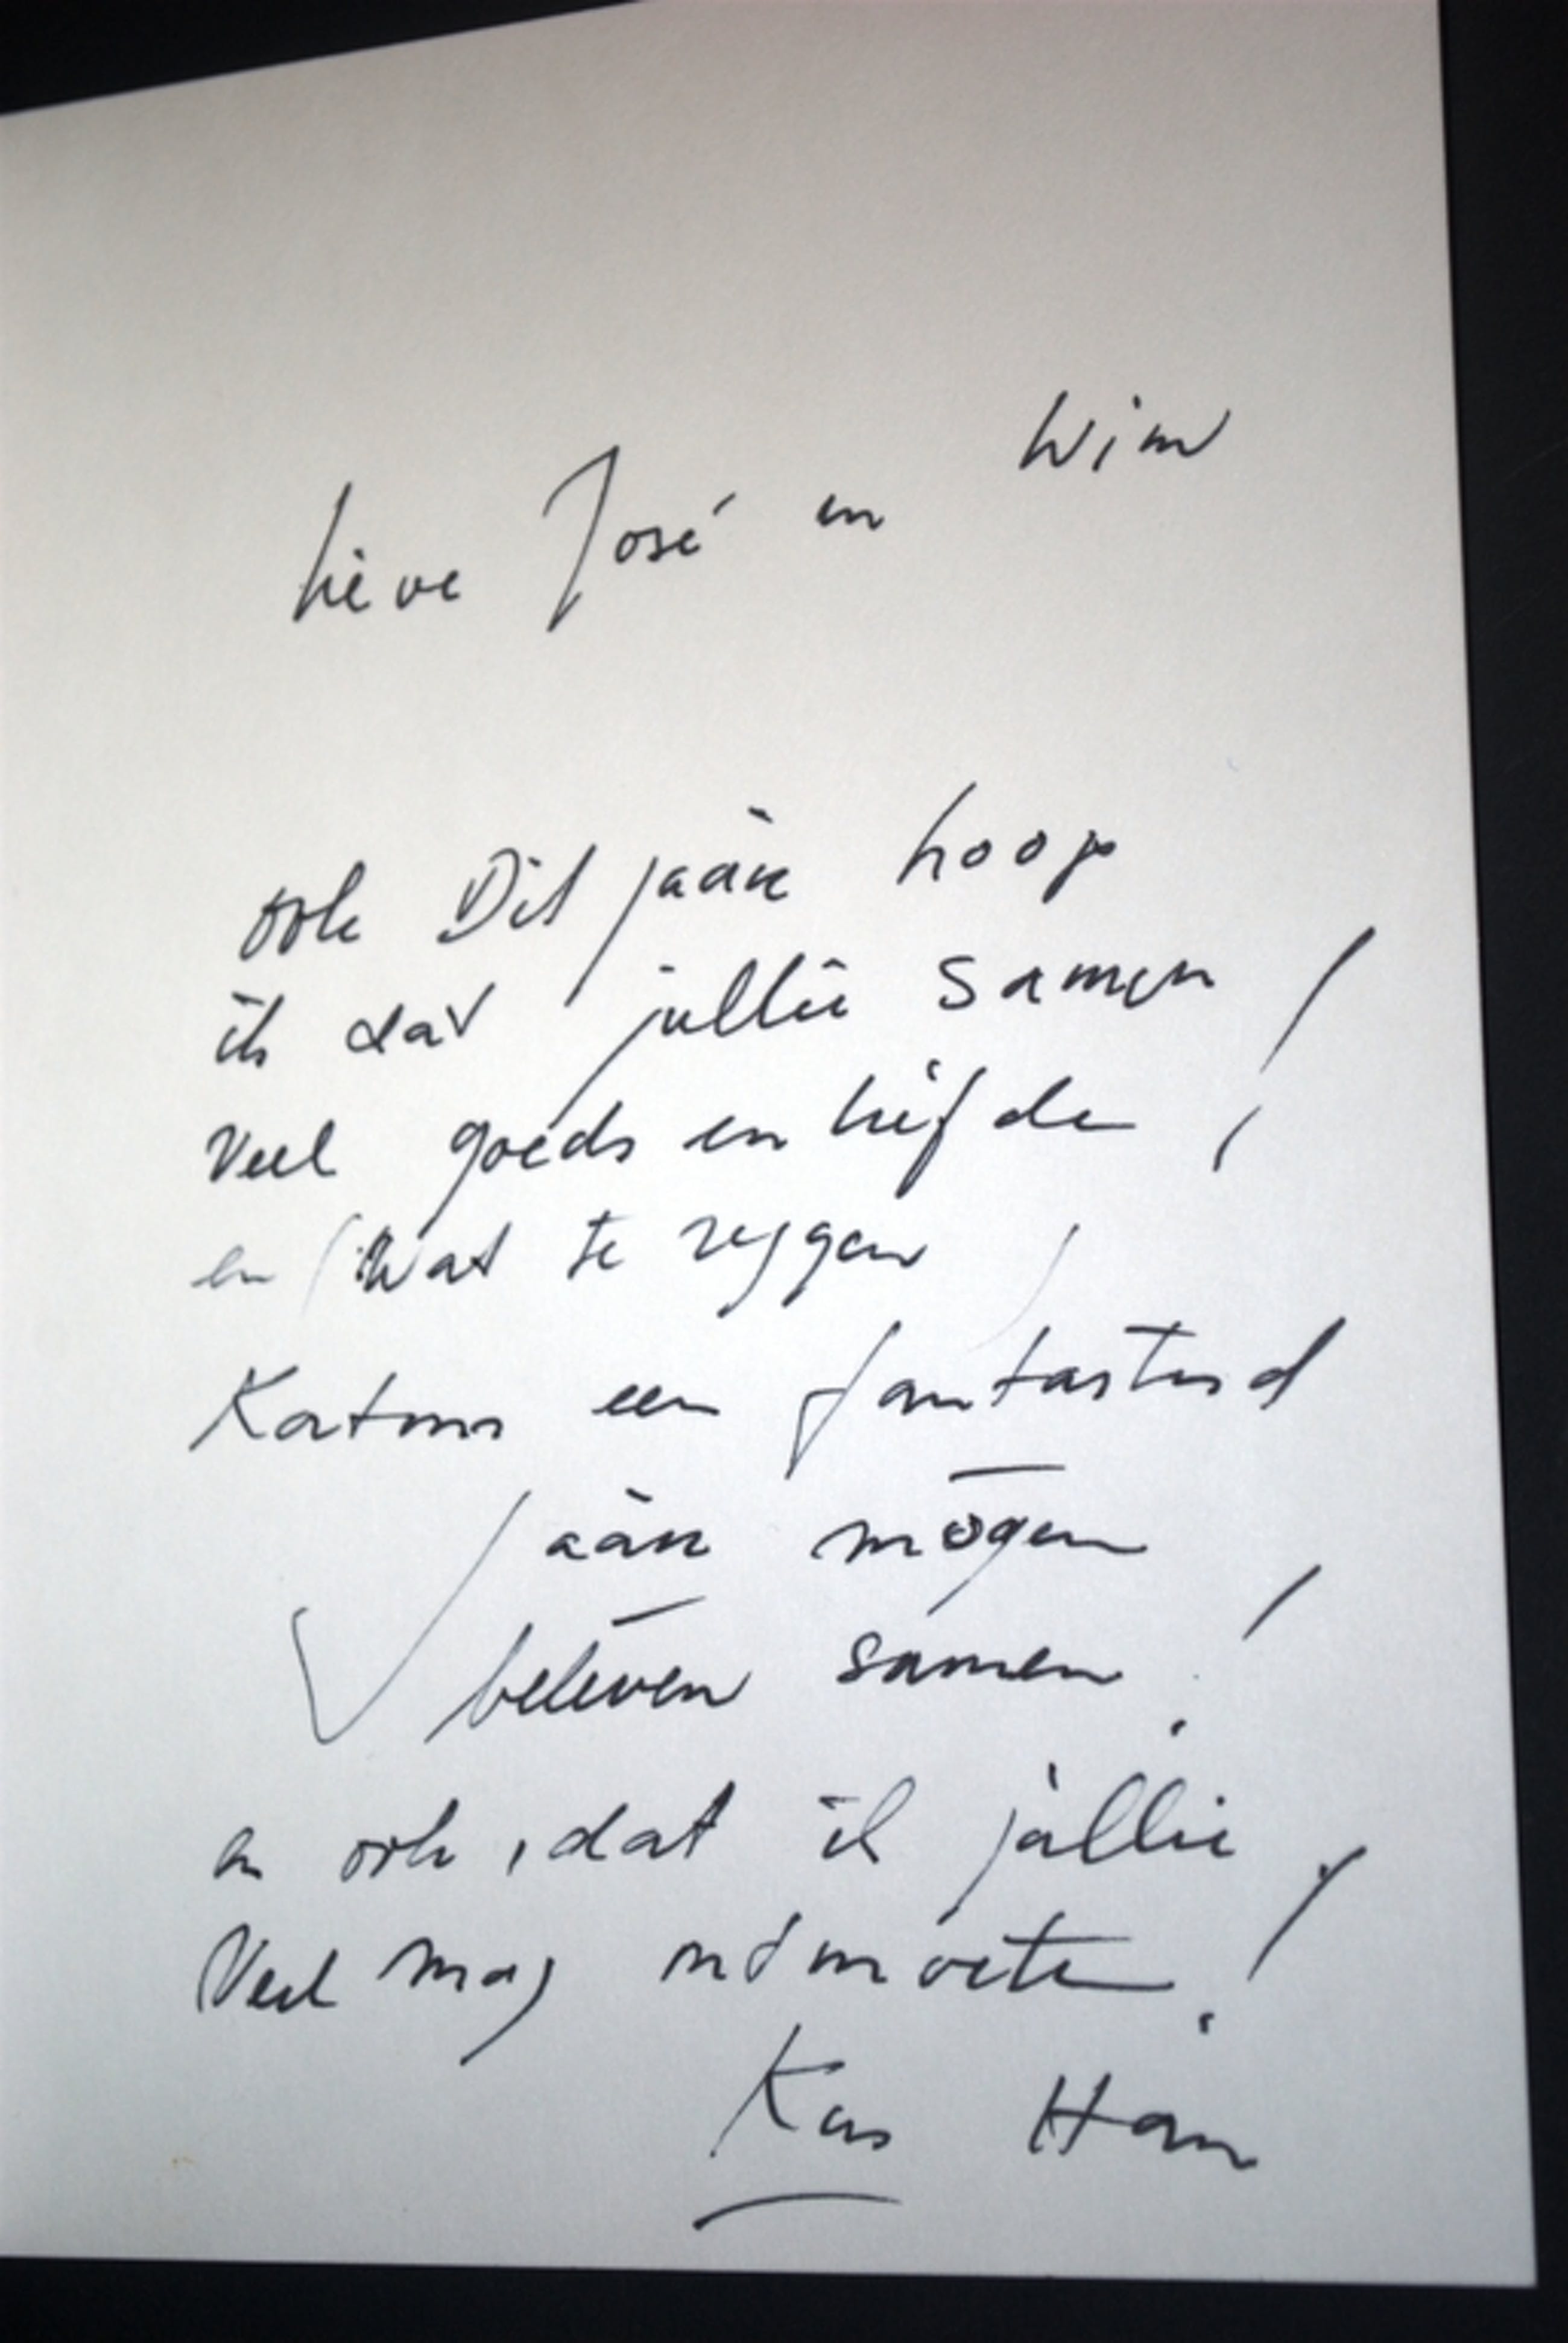 lieve José en Wim
ook Dit jaar hoop
ik dat jullie samen
veel goeds en liefde !
en wat te zeggen
een fantastisch
jaar mogen
beleven samen !
en ook, dat ik jullie
veel mag ontmoeten !
Kus Han